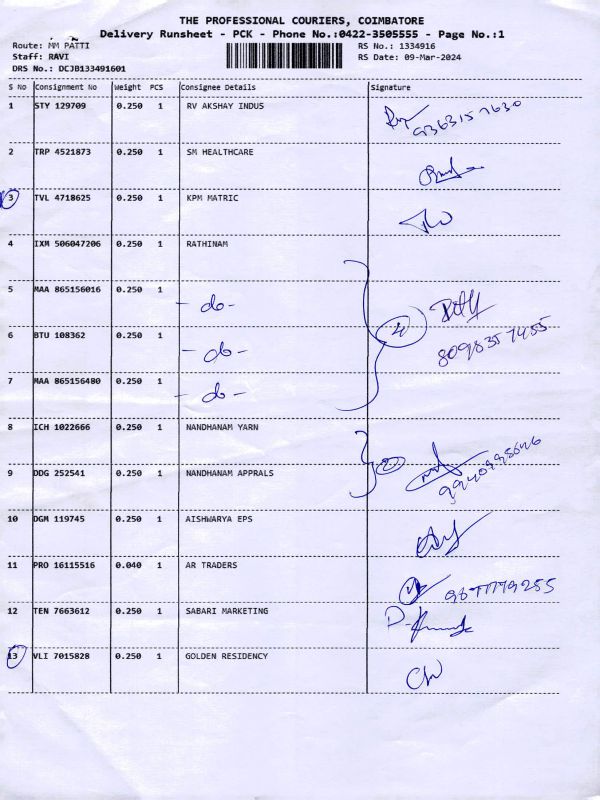 THE PROFESSIONAL COURIERS, COIMBATORE
Delivery Runsheet - PCK - Phone No.:0422-3505555 - Page No.:1
Route: MM PATTI RS No.: 1334916
Staff: RAVI RS Date: 09-Mar-2024
DRS No.: DCJB133491601
S No Consignment No Weight PCS Consignee Details Signature
1 STY 129709 0.250 1 RV AKSHAY INDUS
9363157630
2 TRP 4521873 0.250 1 SM HEALTHCARE
3 TVL 4718625 0.250 1 KPM MATRIC
4 IXM 506047206 0.250 1 RATHINAM
5 MAA 865156016 0.250 1 - do -
4
6 BTU 108362 0.250 1 - do -
8098357455
7 MAA 865156480 0.250 1 - do -
8 ICH 1022666 0.250 1 NANDHANAM YARN
2
9 DDG 252541 0.250 1 NANDHANAM APPRALS
10 DGM 119745 0.250 1 AISHWARYA EPS
11 PRO 16115516 0.040 1 AR TRADERS
12 TEN 7663612 0.250 1 SABARI MARKETING
13 VLI 7015828 0.250 1 GOLDEN RESIDENCY